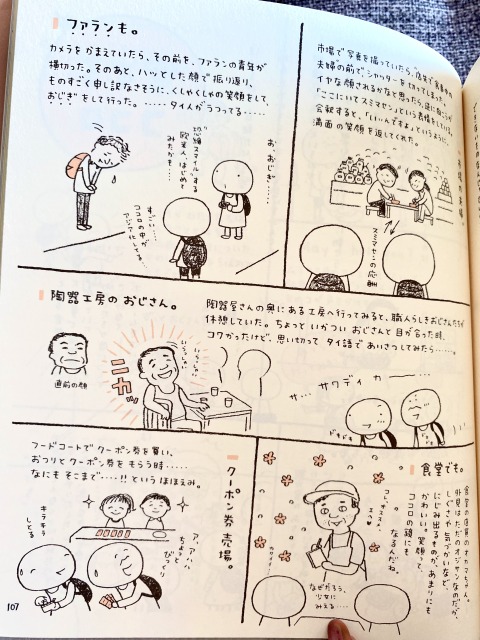 ファランも。
カメラをかまえていたら、その前を、ファランの青年が
横切った。そのあと、ハッとした顔で振り返り、
ものすごく申し訳なさそうに、くしゃくしゃの笑顔をして、
おじぎをして行った。……タイ人がうつってる……
お、おじぎ……
"恐縮スマイル"する
欧米人、はじめて
みたかも……
すごい……
ココロの中が
アジア化してる…
市場で写真を撮っていたら、店先で食事中の
夫婦の前でシャッターを切ってしまった。
イヤな顔されるかなと思ったら、逆に向こうが
「ここにいてスミマセン」という表情をしている。
会釈すると、「いいんですよ」というように、
満面の笑顔を返してくれた。
市場の夫婦。
スミマセンの応酬
陶器工房のおじさん。
陶器屋さんの奥にある工房へ行ってみると、職人らしきおじさんたちが
休憩していた。ちょっといかついおじさんと目が合った時、
コワかったけど、思い切ってタイ語であいさつしてみたら……。
直前の顔
ニカッ
いらっしゃい
いらっしゃい
サ… サワディカー――…
ドキドキ
クーポン券売場。
フードコートでクーポン券を買い、
おつりとクーポン券をもらう時……
なにもそこまで…!!というほほえみ。
キラキラ
してる
ア、アハハ
ちょっと
びっくり
食堂でも。
食堂の店員のオカマちゃん。
外見はただのオジサンなのだが、
しぐさや気づかいなど、
にじみ出るものが、あまりにも
かわいい。笑顔って、
ココロの顔にも
なるんだね。
コレ、オススメよ
エヘ
カワイイ…
なぜだろう、
少女に
みえる……
107